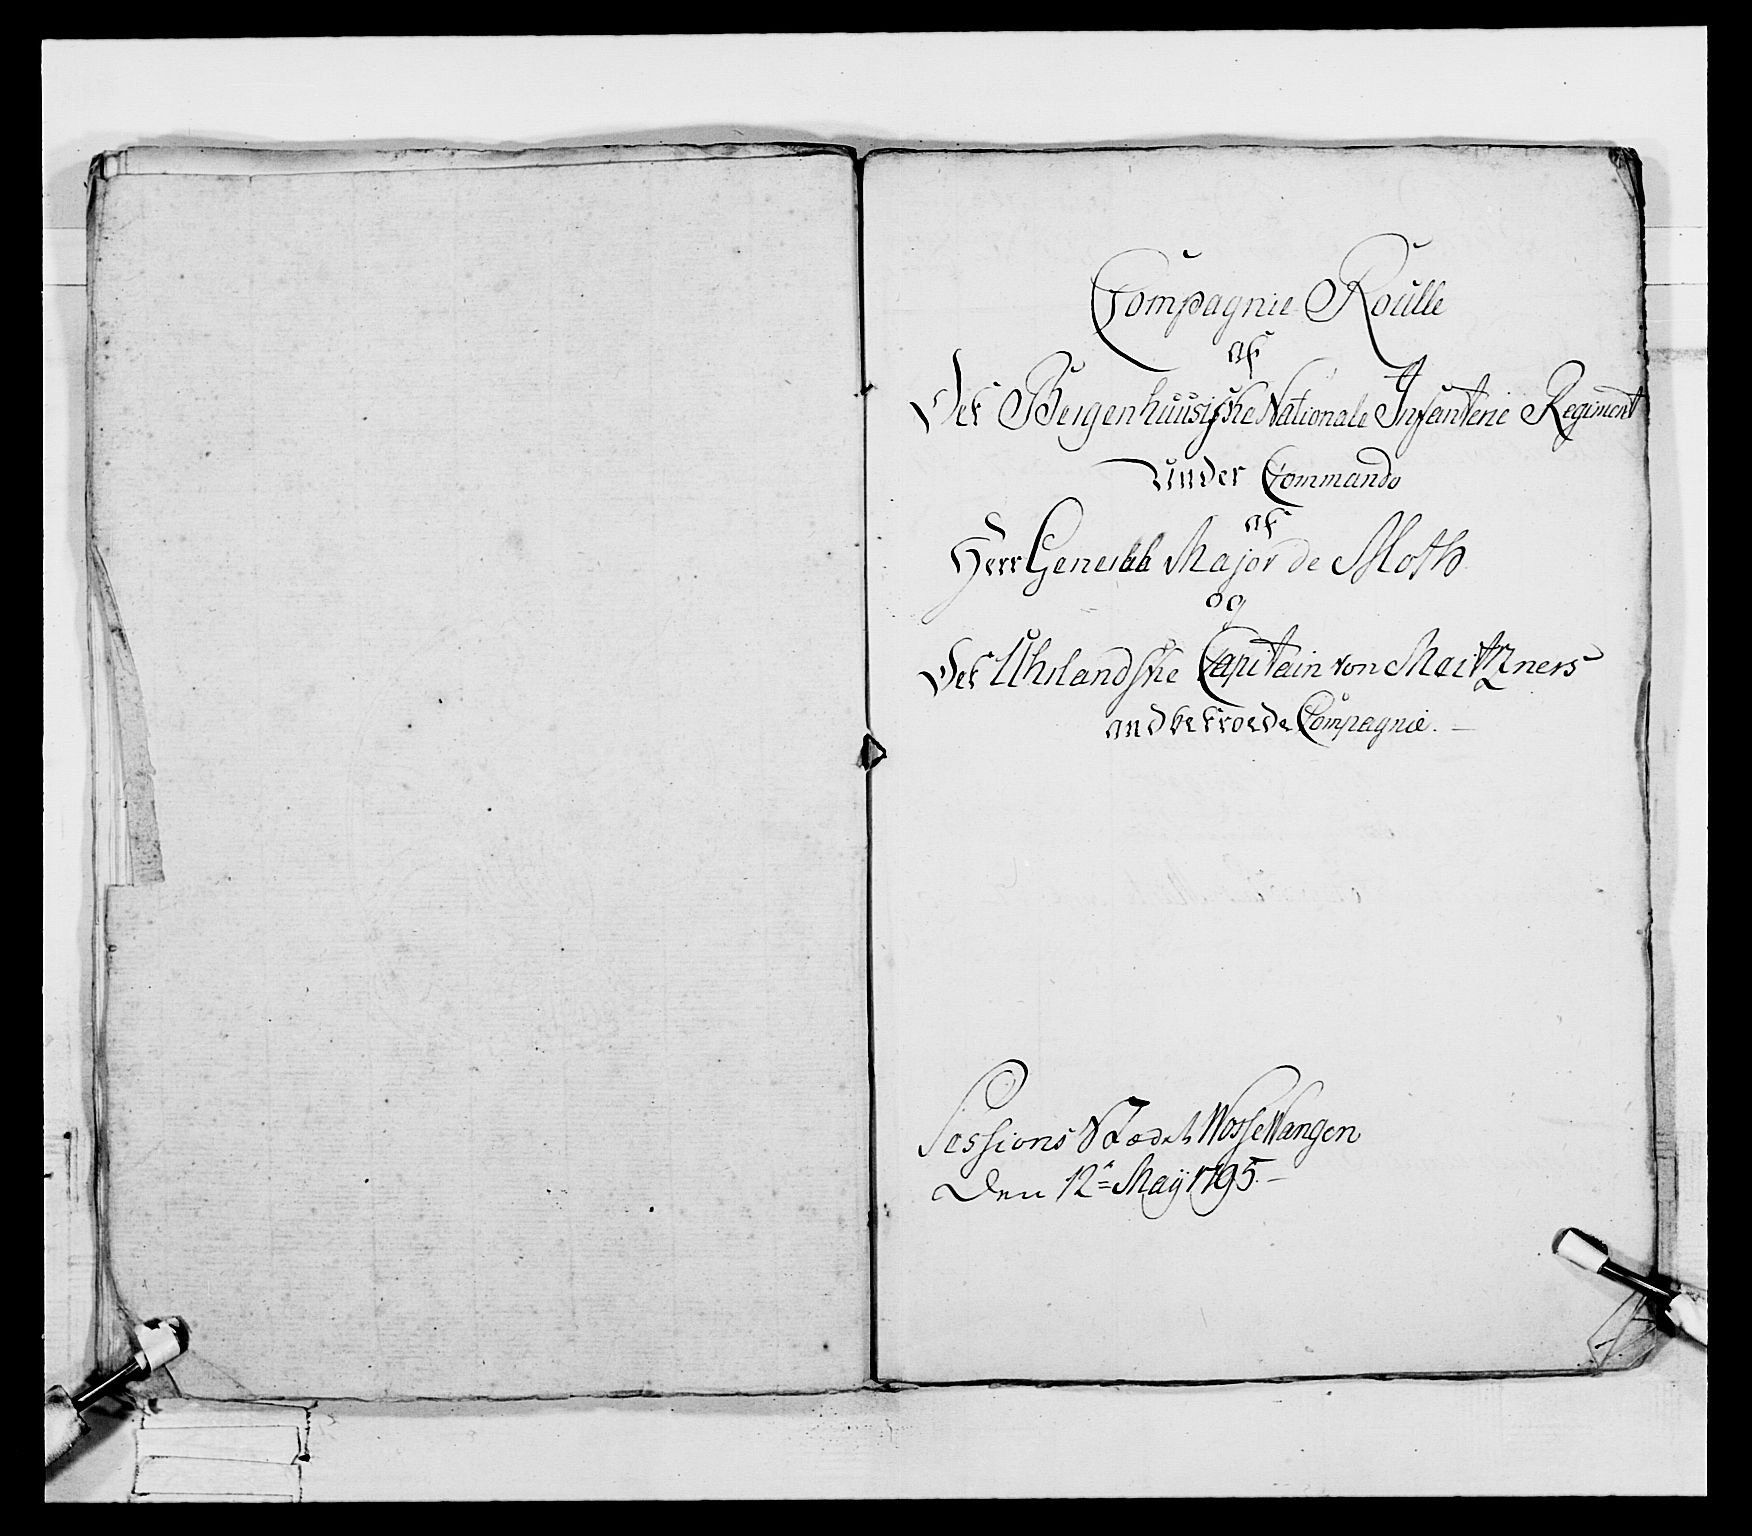 Compagnie Roulle
af
Det Bergenhuusiske Nationale Infanterie Regiment
under Commando
af
Herr General Major de Moth
og
Det Uhrlandske Capitain von Maitzners
andbetroede Compagnie. —
Sessions Stædet Wosse Wangen
Den 12te May 1795. —